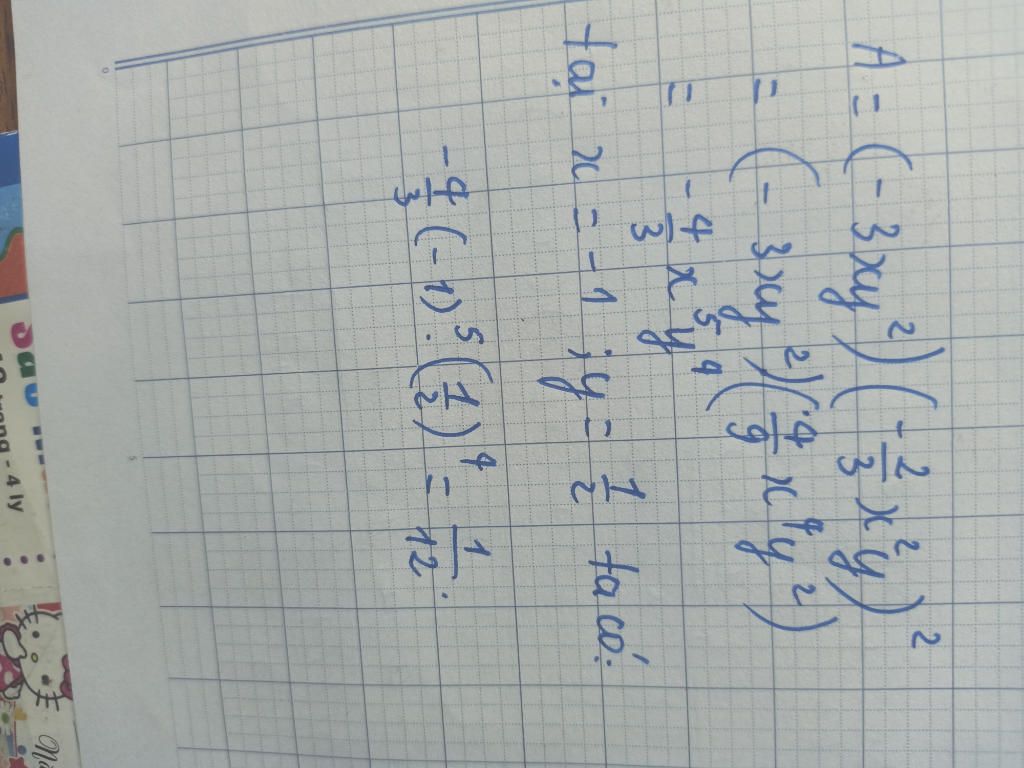 A = (-3xy²)(-2/3 x²y)²
= (-3xy²)(4/9 x⁴y²)
= -4/3 x⁵y⁴
tại x = -1 ; y = 1/2 ta có:
-4/3 (-1)⁵.(1/2)⁴ = 1/12.
4 ly